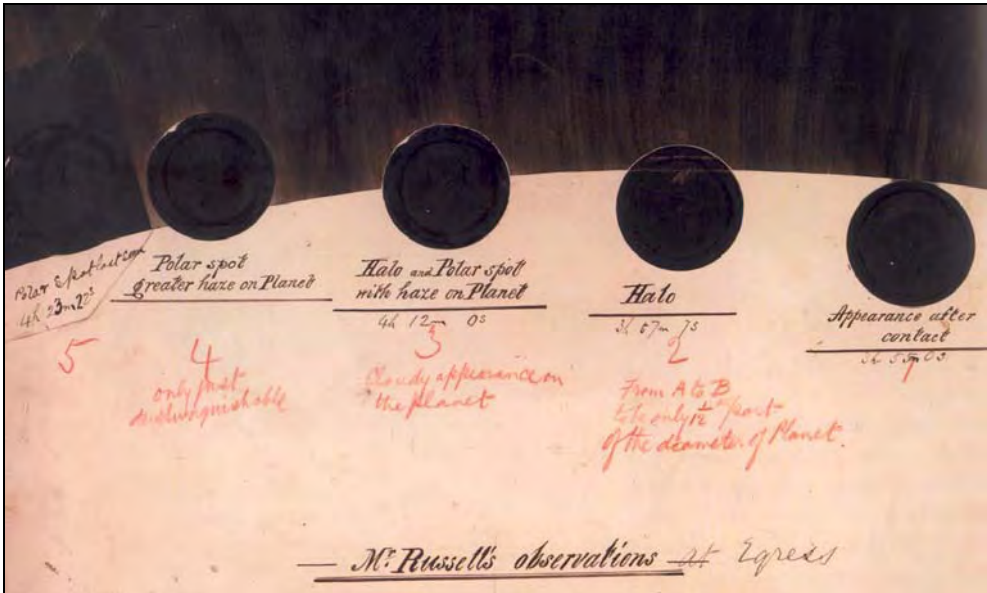 Polar Spot lost seen
4h 23m 22s
5
Polar spot
greater haze on Planet
4
only just
distinguishable
Halo and Polar spot
with haze on Planet
4h 12m 0s
3
Cloudy appearance on
the planet
Halo
3h 57m 7s
2
From A to B
to be only 1/12th part
of the diameter of Planet.
Appearance after
contact
3h 55m 0s
1
— Mr. Russell's observations — at Egress